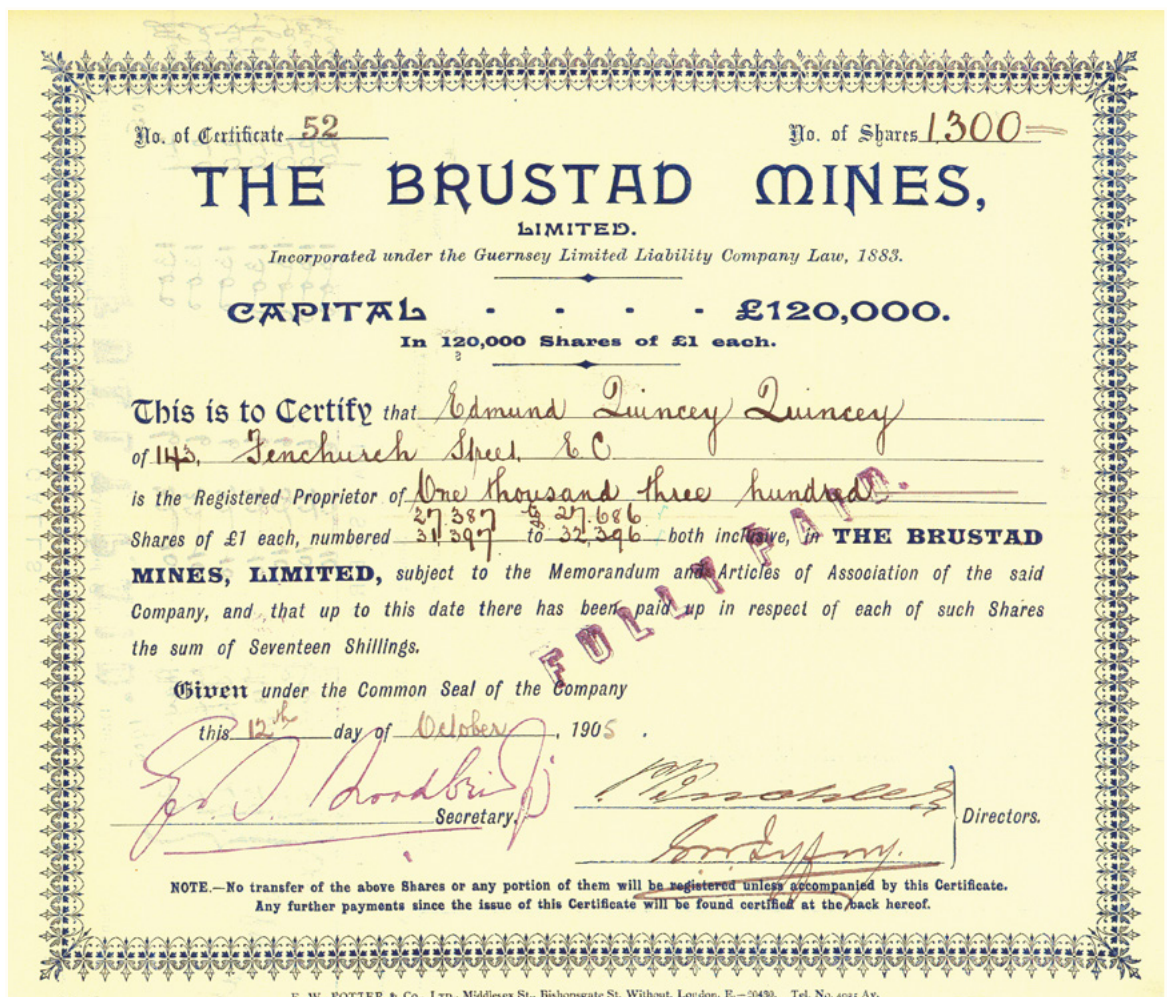 No. of Certificate 52
No. of Shares 1300
THE BRUSTAD MINES,
LIMITED.
Incorporated under the Guernsey Limited Liability Company Law, 1883.
CAPITAL - - - - £120,000.
In 120,000 Shares of £1 each.
This is to Certify that Edmund Quincey Quincey
of 143, Fenchurch Street, E C
is the Registered Proprietor of One thousand three hundred
27.387 to 27.686
Shares of £1 each, numbered 31,397 to 32,396 both inclusive, in THE BRUSTAD
MINES, LIMITED, subject to the Memorandum and Articles of Association of the said
Company, and that up to this date there has been paid up in respect of each of such Shares
the sum of Seventeen Shillings.
FULLY PAID.
Given under the Common Seal of the Company
this 12th day of October, 1905.
Secretary.
Directors.
NOTE.—No transfer of the above Shares or any portion of them will be registered unless accompanied by this Certificate.
Any further payments since the issue of this Certificate will be found certified at the back hereof.
POTTER & Co., Ltd., Middlesex St., Bishopsgate St. Without, London, E.
Tel. No.